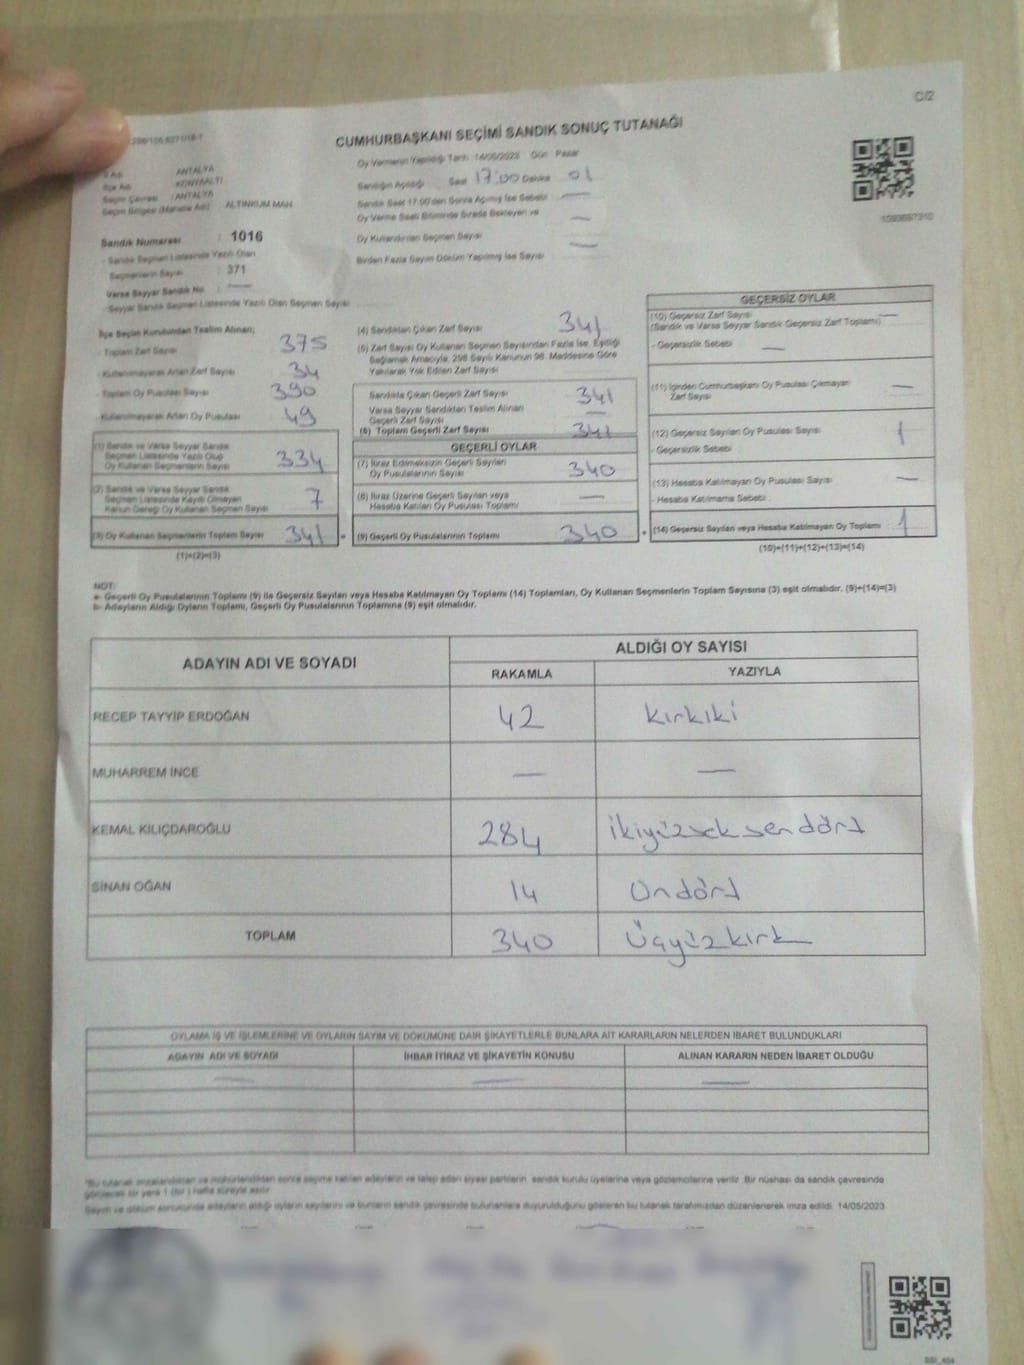 C/2
CUMHURBAŞKANI SEÇİMİ SANDIK SONUÇ TUTANAĞI
Oy Vermenin Yapıldığı Tarih : 14/05/2023 Gün : Pazar
İl Adı : ANTALYA
İlçe Adı : KONYAALTI
Seçim Çevresi : ANTALYA
Seçim Bölgesi (Mahalle Adı) : ALTINKUM MAH.
Sandığın Açıldığı Saat 17:00 Dakika 01
Sandık Saat 17:00'den Sonra Açılmış İse Sebebi —
Oy Verme Saati Bitiminde Sırada Bekleyen ve
Oy Kullandırılan Seçmen Sayısı —
Birden Fazla Sayım Döküm Yapılmış İse Sayısı —
Sandık Numarası : 1016
- Sandık Seçmen Listesinde Yazılı Olan
Seçmenlerin Sayısı : 371
Varsa Seyyar Sandık No : —
- Seyyar Sandık Seçmen Listesinde Yazılı Olan Seçmen Sayısı
İlçe Seçim Kurulundan Teslim Alınan;
- Toplam Zarf Sayısı 375
- Kullanılmayarak Artan Zarf Sayısı 34
- Toplam Oy Pusulası Sayısı 390
- Kullanılmayarak Artan Oy Pusulası 49
(1) Sandık ve Varsa Seyyar Sandık
Seçmen Listesinde Yazılı Olup
Oy Kullanan Seçmenlerin Sayısı 334
(2) Sandık ve Varsa Seyyar Sandık
Seçmen Listesinde Kayıtlı Olmayan
Kanun Gereği Oy Kullanan Seçmen Sayısı 7
(3) Oy Kullanan Seçmenlerin Toplam Sayısı 341 =
(1)+(2)=(3)
(4) Sandıktan Çıkan Zarf Sayısı 341
(5) Zarf Sayısı Oy Kullanan Seçmen Sayısından Fazla İse, Eşitliği
Sağlamak Amacıyla, 298 Sayılı Kanunun 98. Maddesine Göre
Yakılarak Yok Edilen Zarf Sayısı
Sandıkta Çıkan Geçerli Zarf Sayısı 341
Varsa Seyyar Sandıktan Teslim Alınan
Geçerli Zarf Sayısı —
(6) Toplam Geçerli Zarf Sayısı 341
GEÇERLİ OYLAR
(7) İtiraz Edilmeksizin Geçerli Sayılan
Oy Pusulalarının Sayısı 340
(8) İtiraz Üzerine Geçerli Sayılan veya
Hesaba Katılan Oy Pusulası Toplamı —
(9) Geçerli Oy Pusulalarının Toplamı 340 +
GEÇERSİZ OYLAR
(10) Geçersiz Zarf Sayısı —
(Sandık ve Varsa Seyyar Sandık Geçersiz Zarf Toplamı)
- Geçersizlik Sebebi —
(11) İçinden Cumhurbaşkanı Oy Pusulası Çıkmayan
Zarf Sayısı —
(12) Geçersiz Sayılan Oy Pusulası Sayısı 1
- Geçersizlik Sebebi
(13) Hesaba Katılmayan Oy Pusulası Sayısı —
- Hesaba Katılmama Sebebi :
(14) Geçersiz Sayılan veya Hesaba Katılmayan Oy Toplamı 1
(10)+(11)+(12)+(13)=(14)
NOT:
a- Geçerli Oy Pusulalarının Toplamı (9) ile Geçersiz Sayılan veya Hesaba Katılmayan Oy Toplamı (14) Toplamları, Oy Kullanan Seçmenlerin Toplam Sayısına (3) eşit olmalıdır. (9)+(14)=(3)
b- Adayların Aldığı Oyların Toplamı, Geçerli Oy Pusulalarının Toplamına (9) eşit olmalıdır.
ADAYIN ADI VE SOYADI
ALDIĞI OY SAYISI
RAKAMLA YAZIYLA
RECEP TAYYİP ERDOĞAN 42 kırkiki
MUHARREM İNCE — —
KEMAL KILIÇDAROĞLU 284 ikiyüzseksendört
SİNAN OĞAN 14 Ondört
TOPLAM 340 Üçyüzkırk
OYLAMA İŞ VE İŞLEMLERİNE VE OYLARIN SAYIM VE DÖKÜMÜNE DAİR ŞİKAYETLERLE BUNLARA AİT KARARLARIN NELERDEN İBARET BULUNDUKLARI
ADAYIN ADI VE SOYADI İHBAR İTİRAZ VE ŞİKAYETİN KONUSU ALINAN KARARIN NEDEN İBARET OLDUĞU
— — —
*Bu tutanak imzalandıktan ve mühürlendikten sonra seçime katılan adayların ve talep eden siyasi partilerin sandık kurulu üyelerine veya gözlemcilerine verilir. Bir nüshası da sandık çevresinde
görülecek bir yere 1 (bir) hafta süreyle asılır.
Sayım ve döküm sonucunda adayların aldığı oyların sayılarını ve bunların sandık çevresinde bulunanlara duyurulduğunu gösteren bu tutanak tarafımızdan düzenlenerek imza edildi. 14/05/2023